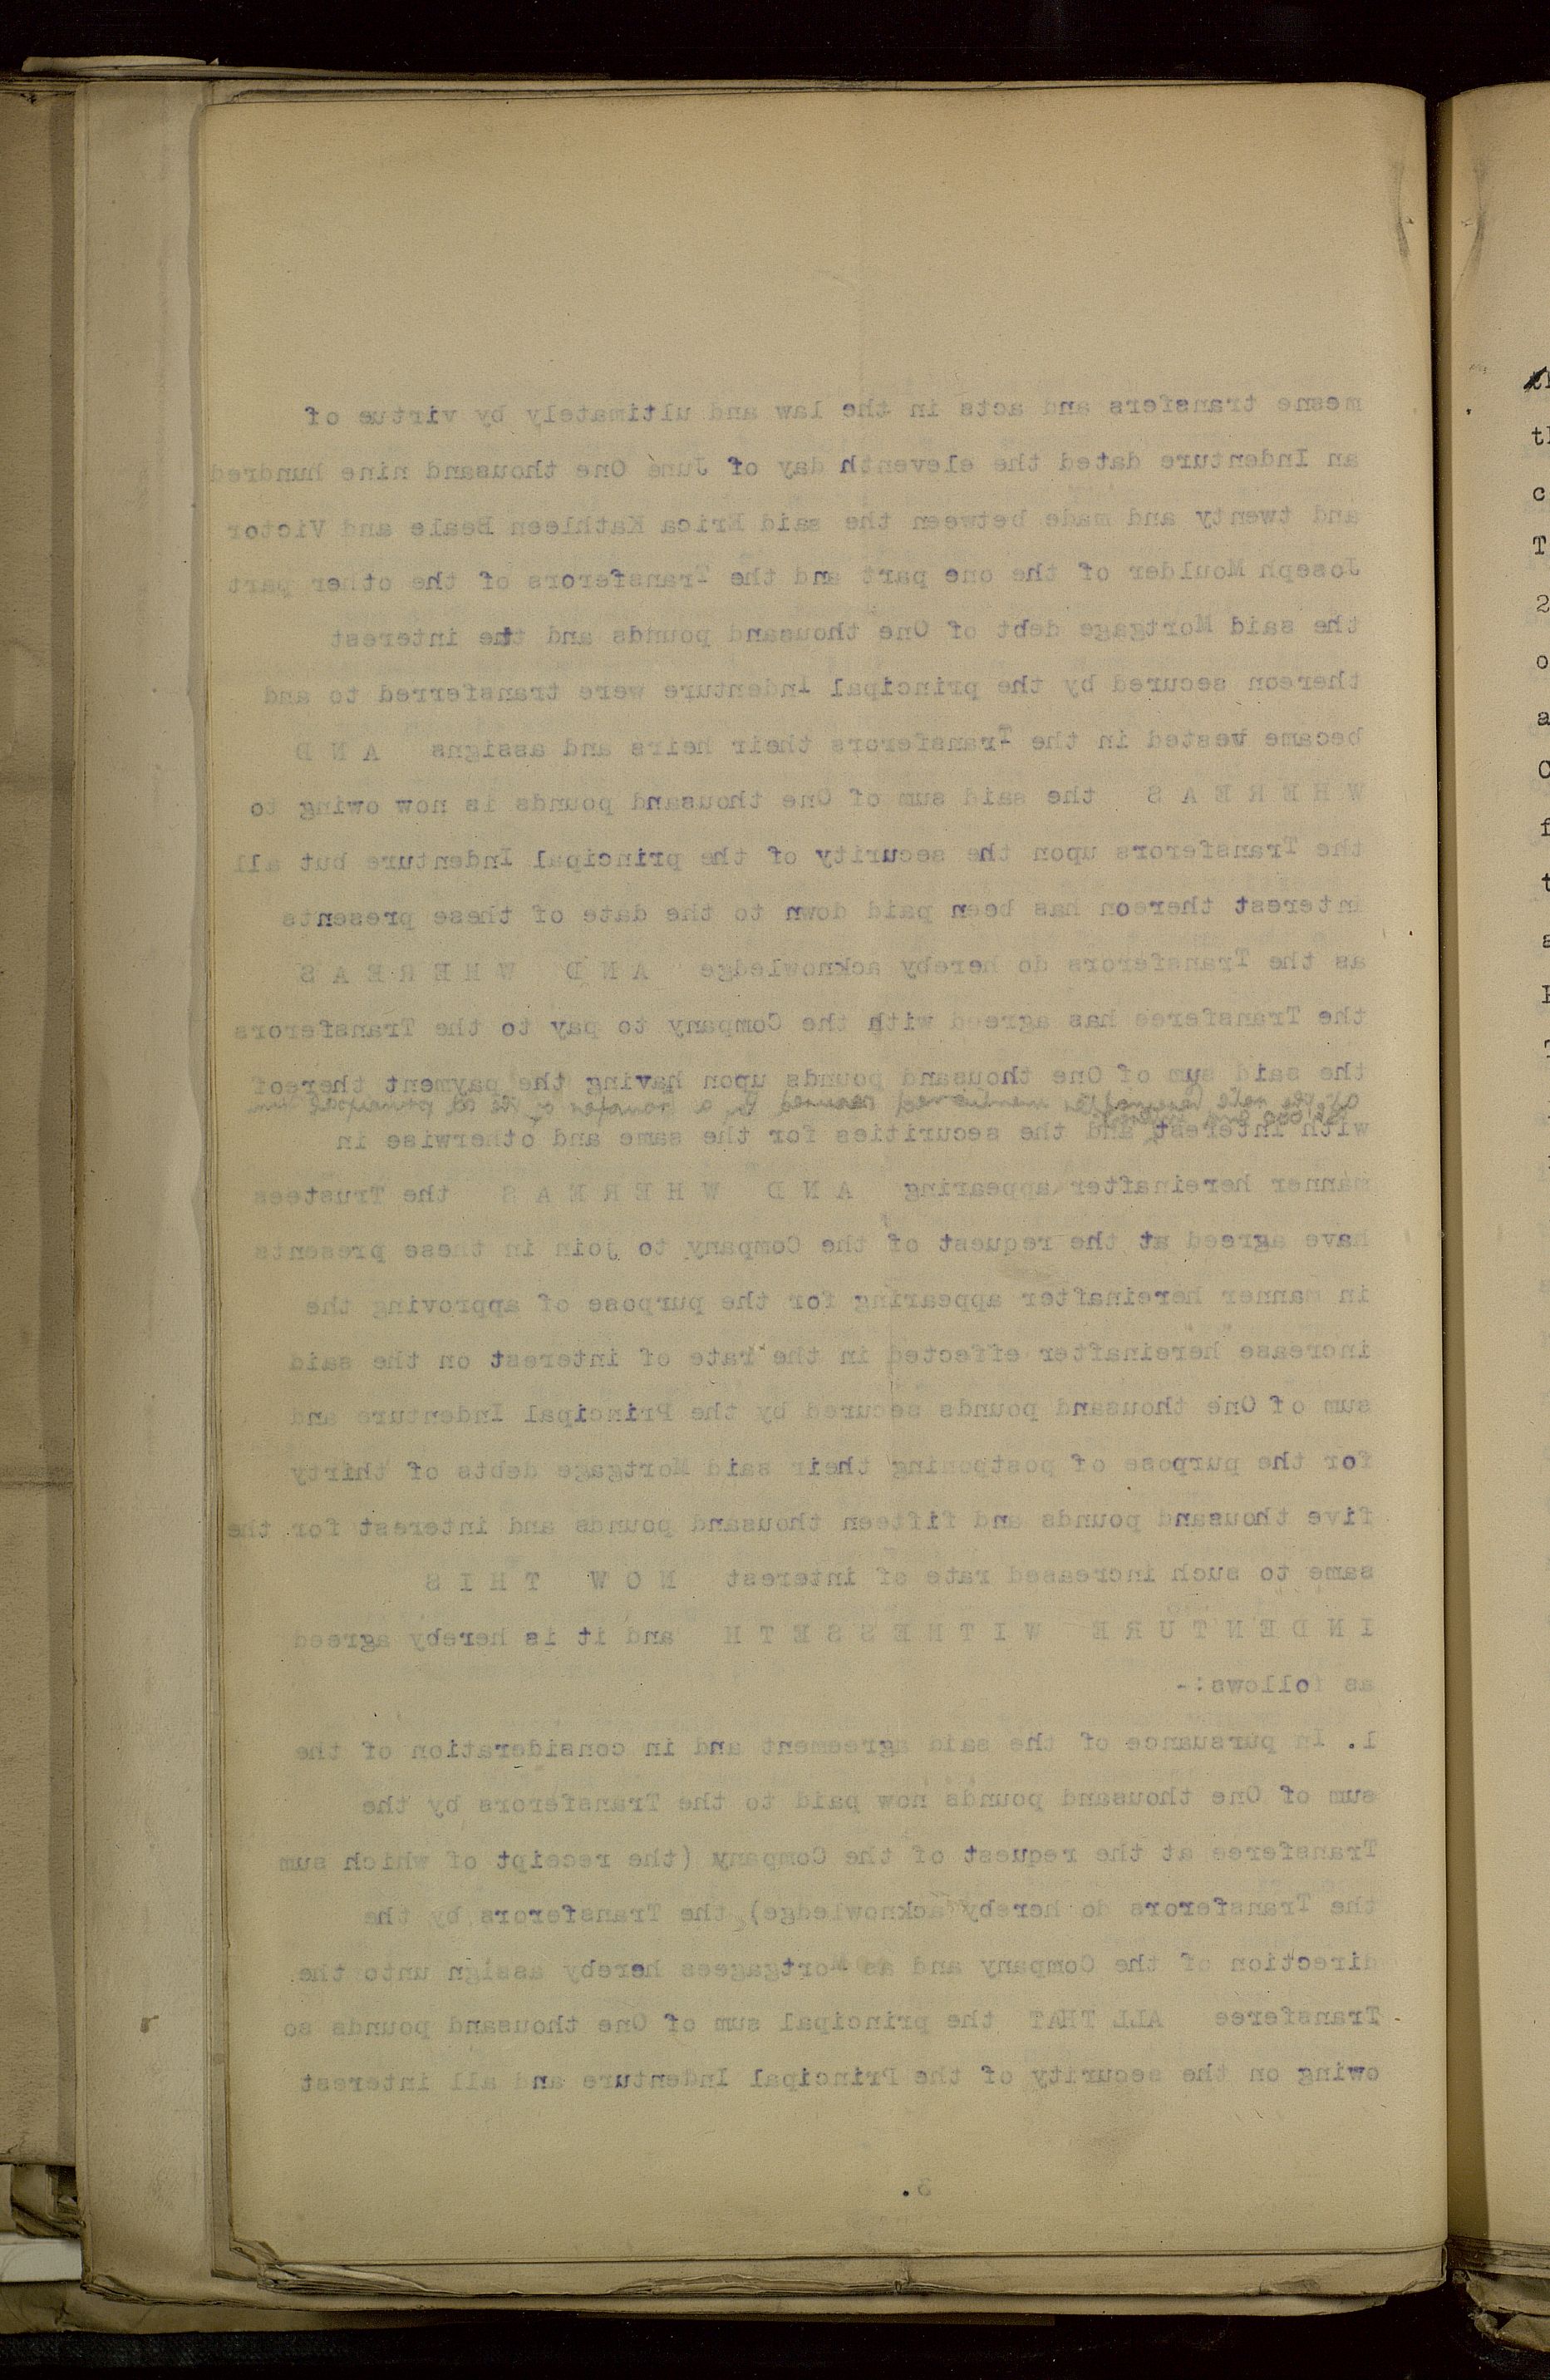 mesne transfers and acts in the law and ultimately by virtue of
an Indenture dated the eleventh day of June One thousand nine hundred
and twenty and made between the said Erica Kathleen Beale and Victor
Joseph Moulder of the one part and the Transferors of the other part
the said Mortgage debt of One thousand pounds and the interest
thereon secured by the principal Indenture were transferred to and
became vested in the Transferors their heirs and assigns A N D
W H E R E A S the said sum of One thousand pounds is now owing to
the Transferors upon the security of the principal Indenture but all
interest thereon has been paid down to the date of these presents
as the Transferors do hereby acknowledge A N D W H E R E A S
the Transferee has agreed with the Company to pay to the Transferors
the said sum of One thousand pounds upon having the payment thereof
at the rate hereinafter mentioned secured by a transfer of the sd principal sum
of £1,000 and interest
with interest and the securities for the same and otherwise in
manner hereinafter appearing A N D W H E R E A S the Trustees
have agreed at the request of the Company to join in these presents
in manner hereinafter appearing for the purpose of approving the
increase hereinafter effected in the rate of interest on the said
sum of One thousand pounds secured by the Principal Indenture and
for the purpose of postponing their said Mortgage debts of thirty
five thousand pounds and fifteen thousand pounds and interest for the
same to such increased rate of interest N O W T H I S
I N D E N T U R E W I T N E S S E T H and it is hereby agreed
as follows:-
1. In pursuance of the said agreement and in consideration of the
sum of One thousand pounds now paid to the Transferors by the
Transferee at the request of the Company (the receipt of which sum
the Transferors do hereby acknowledge) the Transferors by the
direction of the Company and as Mortgagees hereby assign unto the
Transferee ALL THAT the principal sum of One thousand pounds so
owing on the security of the Principal Indenture and all interest
3.